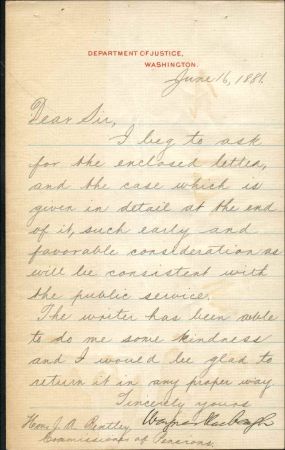 DEPARTMENT OF JUSTICE,
WASHINGTON.
June 16, 1881.
Dear Sir,
I beg to ask
for the enclosed letter,
and the case which is
given in detail at the end
of it, such early and
favorable consideration as
will be consistent with
the public service.
The writer has been able
to do me some kindness
and I would be glad to
return it in any proper way
Sincerely yours
Hon. J. A. Bentley Wayne MacVeagh
Commissioner of Pensions.